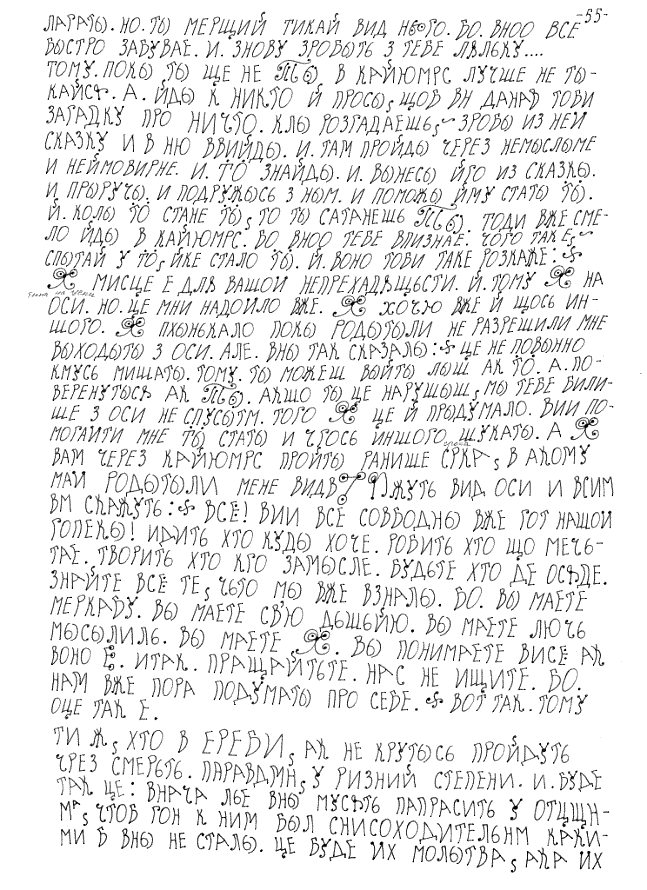 -55-
ЛАРАТЫ. НО. ТЫ МЕРЩИЙ ТИКАЙ ВИД НЕГО. БО. ВНОО ВСЕ
БЫСТРО ЗАБУВАЕ. И. ЗНОВУ ЗРОБЫТЬ З ТЕБЕ ЛЯЛЬКУ....
ТОМУ. ПОКЫ ТЫ ЩЕ НЕ ТЫ, В КАЙЮМРС ЛУЧШЕ НЕ ТЫ-
КАЙСЯ. А. ЙДЫ К НИКТО Й ПРОСЫ, ЩОБ ВН ДАНАВ ТОБИ
ЗАГАДКУ ПРО НИЧТО. КЛЫ РОЗГАДАЕШЬ, ЗРОБЫ ИЗ НЕЙ
СКАЗКУ И В НЮ ВВИЙДЫ. И. ТАМ ПРОЙДЫ ЧЕРЕЗ НЕМЫСЛЫМЕ
И НЕЙМОВИРНЕ. И. ТО ЗНАЙДЫ. И. ВЫНЕСЫ ЙГО ИЗ СКАЗКЫ.
И. ПРЫРУЧЫ. И ПОДРУЖЫСЬ З НЫМ. И ПОМОЖЫ ЙМУ СТАТЫ ТЫ.
Й. КОЛЫ ТО СТАНЕ ТЫ, ТО ТЫ САТАНЕШЬ ТЫ. ТОДИ ВЖЕ СМЕ-
ЛО ЙДЫ В КАЙЮМРС. БО ВНОО ТЕБЕ ВПИЗНАЕ. ЧОГО ТАК Е,
СПЫТАЙ У ТЫ, ЙКЕ СТАЛО ТЫ. Й. ВОНО ТОБИ ТАКЕ РОЗКАЖЕ:
МИСЦЕ Е ДЛЯ ВАШОЙ НЕПРЕХАДЯЩЬСТИ. Й. ТОМУ Ж НА
ОСИ. НО. ЦЕ МНИ НАДОИЛО ВЖЕ. Ж ХОЧЮ ВЖЕ Й ЩОСЬ ИН-
ШОГО. Ж ПХЫНЬКАЛО ПОКЫ РОДЫТЫЛИ НЕ РАЗРЕШИЛИ МНЕ
ВЫХОДЫТЫ З ОСИ. АЛЕ. ВНЫ ТАК СКАЗАЛЫ: ЦЕ НЕ ПОВЫННО
КМУСЬ МИШАТЫ. ТОМУ. ТЫ МОЖЕШ ВЫЙТЫ ЛЫШ АК ТО. А. ПО-
ВЕРЕНУТЫСЯ АК ТЫ. АКШО ТЫ ЦЕ НАРУШЫШ, МЫ ТЕБЕ БИЛИ-
ШЕ З ОСИ НЕ СПУСЫТМ. ТОГО Ж ЦЕ Й ПРЫДУМАЛО. ВИИ ПО-
МОГАИТИ МНЕ ТЫ СТАТЫ И ЧТОСЬ ИНШОГО ШУКАТЫ. А Ж
ВАМ ЧЕРЕЗ КАЙЮМРС ПРОЙТЫ РАНИШЕ СРКА, В АКОМУ
МАЙ РОДЫТЫЛИ МЕНЕ ВИДВ ЖУТЬ ВИД ОСИ И ВСИМ
ВМ СКАЖУТЬ: ВСЕ! ВИИ ВСЕ СОВБОДНЫ ВЖЕ ГОТ НАШОЙ
ГОПЕКЫ! ИДИТЬ ХТО КУДЫ ХОЧЕ. РОБИТЬ ХТО ЩО МЕЧЬ-
ТАЕ. ТВОРИТЬ ХТО КГО ЗАМЫСЛЕ. БУДЬТЕ ХТО ДЕ ОСЯДЕ.
ЗНАЙТЕ ВСЕ ТЕ, ЧЬТО МЫ ВЖЕ ВЗНАЛЫ. БО. ВЫ МАЕТЕ
МЕРКАБУ. ВЫ МАЕТЕ СВ'Ю ДЬШЬЙЮ. ВЫ МАЕТЕ ЛЮЧЬ
МЫСЫЛИЛЬ. ВЫ МАЕТЕ Ж. ВЫ ПОНИМАЕТЕ ВИСЕ АК
ВОНО Е. ИТАК. ПРАЩАЙТЬТЕ. НАС НЕ ИЩИТЕ. БО.
НАМ ВЖЕ ПОРА ПОДУМАТЫ ПРО СЕБЕ. ВОТ ТАК. ТОМУ
ОЦЕ ТАК Е.
ТИ Ж, ХТО В ЕРЕВИ, АК НЕ КРУТЫСЬ ПРОЙДУТЬ
ЧРЕЗ СМЕРЬТЬ. ПАРАВДЯИН, У РИЗНИЙ СТЕПЕНИ. И. БУДЕ
ТАК ЦЕ: ВНАЧА ЛЬЕ ВНЫ МУСЯТЬ ПАПРАСИТЬ У ОТЦЩН-
М, ЧТОБ ГОН К НИМ БЫЛ СНИСОХОДИТЕЛЬНМ КАКИ-
МИ Б ВНЫ НЕ СТАЛЫ. ЦЕ БУДЕ ИХ МОЛЫТВА, АКА ИХ